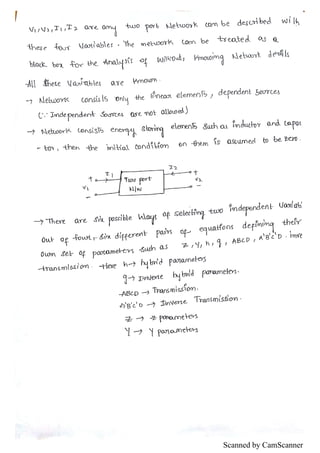 V1,V2,I1,I2 are any two port Network can be described with
these four Variables. The network can be treated as a
black box for the Analysis of without knowing Network details
-All these Variables are known.
→ Network consists only the linear elements, dependent Sources
(∵ Independent Sources are not allowed)
→ Network consists energy storing elements such as inductor and capac
- tor, then the initial condition on them is assumed to be zero.
I1 I2
+ Two port +
V1 N/w V2
- -
→ There are six possible ways of selecting two independent Variabl
out of four, six different pairs of equations defining their
own set of parameters such as Z, Y, h, g, ABCD, A'B'C'D. here
transmission. -Here h→ hybrid parameters
g→ Inverse hybrid parameters.
ABCD → Transmission.
A'B'C'D → Inverse Transmission.
Z → Z parameters
Y → Y parameters
Scanned by CamScanner